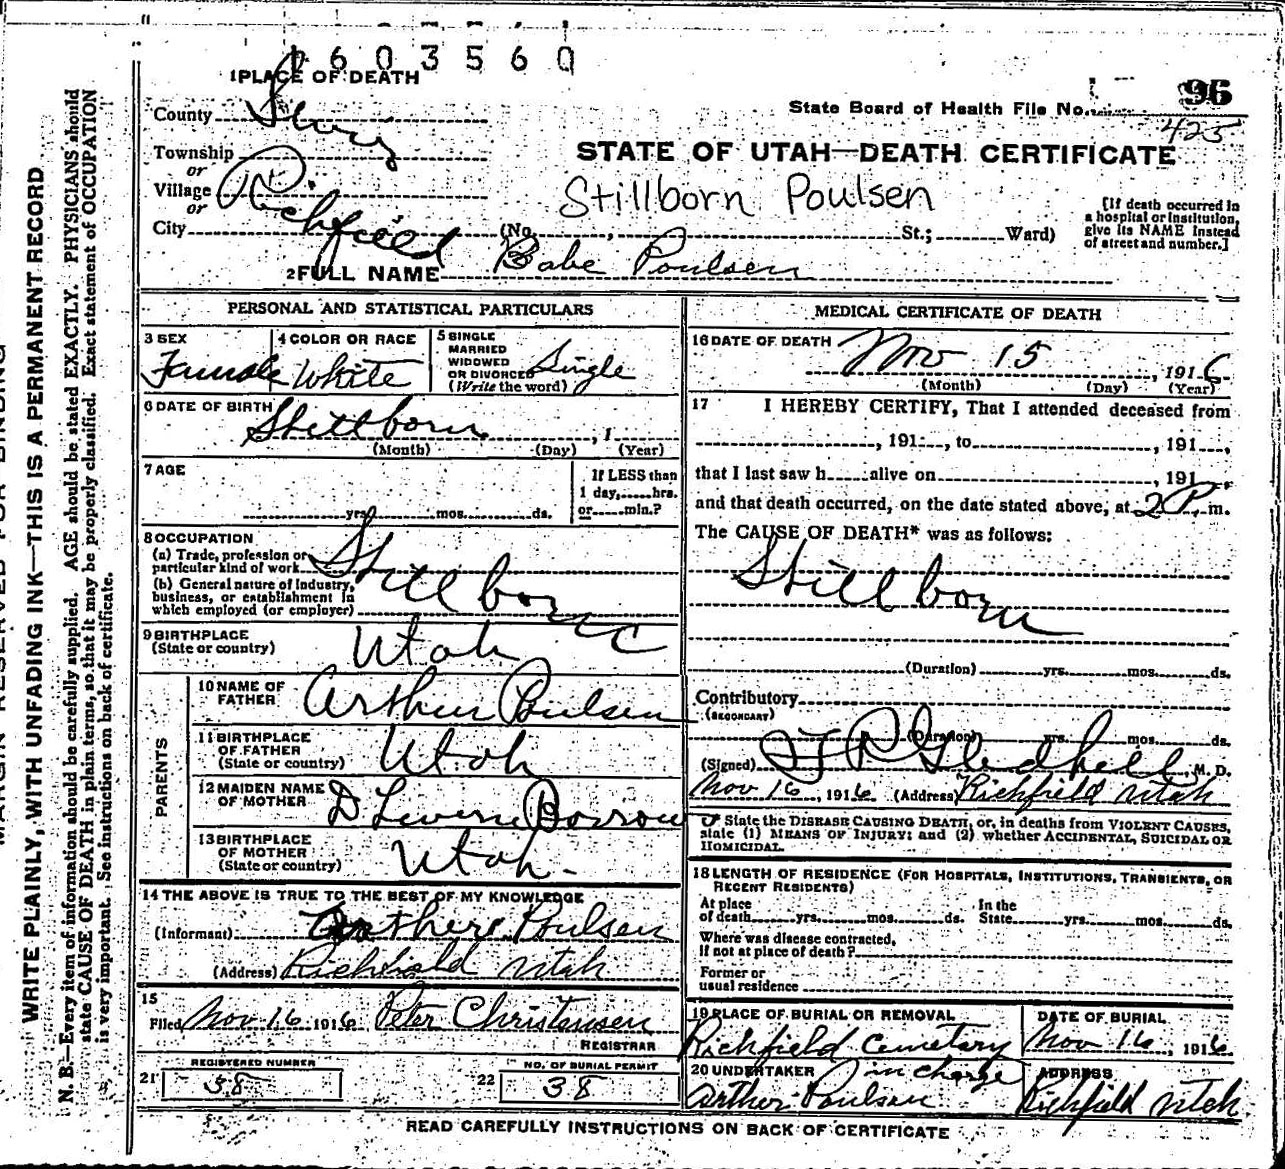 1603560
1 PLACE OF DEATH
96
State Board of Health File No.
425
County Sevier
Township
or
Village
or
City Richfield
STATE OF UTAH—DEATH CERTIFICATE
Stillborn Poulsen
(No. , St.; Ward)
[If death occurred in
a hospital or institution,
give its NAME instead
of street and number.]
2 FULL NAME Babe Poulsen
PERSONAL AND STATISTICAL PARTICULARS
3 SEX
Female
4 COLOR OR RACE
White
5 SINGLE
MARRIED
WIDOWED
OR DIVORCED
(Write the word)
Single
6 DATE OF BIRTH
Stillborn , 1
(Month) (Day) (Year)
7 AGE
yrs. mos. ds.
If LESS than
1 day, hrs.
or min.?
8 OCCUPATION
(a) Trade, profession or
particular kind of work
(b) General nature of Industry,
business, or establishment in
which employed (or employer)
Stillborn
9 BIRTHPLACE
(State or country)
Utah
PARENTS
10 NAME OF
FATHER
Arthur Poulsen
11 BIRTHPLACE
OF FATHER
(State or country)
Utah
12 MAIDEN NAME
OF MOTHER
13 BIRTHPLACE
OF MOTHER
(State or country)
Utah-
14 THE ABOVE IS TRUE TO THE BEST OF MY KNOWLEDGE
(Informant) Poulsen
(Address) Richfield Utah
15
Filed Nov 16 1916 Peter Christensen
REGISTRAR
REGISTERED NUMBER
21
NO. OF BURIAL PERMIT
22 38
MEDICAL CERTIFICATE OF DEATH
16 DATE OF DEATH
Nov 15 , 1916
(Month) (Day) (Year)
17 I HEREBY CERTIFY, That I attended deceased from
, 191 , to , 191 ,
that I last saw h alive on , 191 ,
and that death occurred, on the date stated above, at 2 P. m.
The CAUSE OF DEATH* was as follows:
Stillborn
(Duration) yrs. mos. ds.
Contributory
(SECONDARY)
(Duration) yrs. mos. ds.
(Signed) Gledhill, M. D.
Nov 16, 1916 (Address) Richfield Utah
State the DISEASE CAUSING DEATH, or, in deaths from VIOLENT CAUSES,
state (1) MEANS OF INJURY; and (2) whether ACCIDENTAL, SUICIDAL OR
HOMICIDAL.
18 LENGTH OF RESIDENCE (FOR HOSPITALS, INSTITUTIONS, TRANSIENTS, OR
RECENT RESIDENTS)
At place
of death yrs. mos. ds.
In the
State yrs. mos. ds.
Where was disease contracted,
if not at place of death?
Former or
usual residence
19 PLACE OF BURIAL OR REMOVAL
Richfield Cemetary
DATE OF BURIAL
Nov 16, 1916
20 UNDERTAKER in charge
Arthur Poulsen
ADDRESS
Richfield Utah
READ CAREFULLY INSTRUCTIONS ON BACK OF CERTIFICATE
WRITE PLAINLY, WITH UNFADING INK—THIS IS A PERMANENT RECORD
N. B.—Every item of information should be carefully supplied. AGE should be stated EXACTLY. PHYSICIANS should
state CAUSE OF DEATH in plain terms, so that it may be properly classified. Exact statement of OCCUPATION
is very important. See instructions on back of certificate.